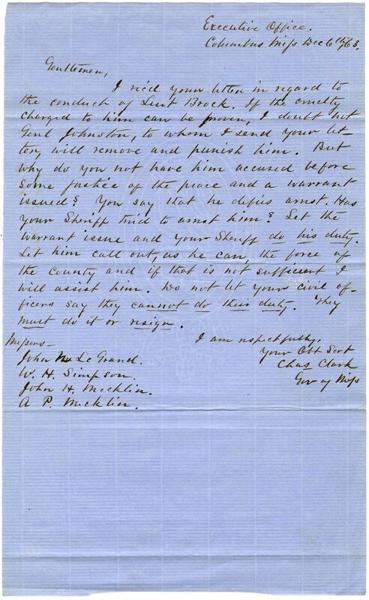 Executive Office.
Columbus Miss Dec 6th /63.
Gentlemen,
I rec'd your letter in regard to
the conduct of Lieut Brock. If the cruelty
charged to him can be proven, I doubt not
Genl Johnston, to whom I send your let-
ter, will remove and punish him. But
why do you not have him accused before
some justice of the peace and a warrant
issued? You say that he defies arrest. Has
your Sheriff tried to arrest him? Let the
warrant issue and your Sheriff do his duty.
Let him call out, as he can, the force of
the county and if that is not sufficient I
will assist him. Do not let your civil of-
ficers say they cannot do their duty. They
must do it or resign.
I am respectfully,
Your Obt Servt
Chas Clark
Gov of Miss
Messrs—
John Le Grand.
W. H. Simpson.
John H. Micklin.
A P. Micklin.